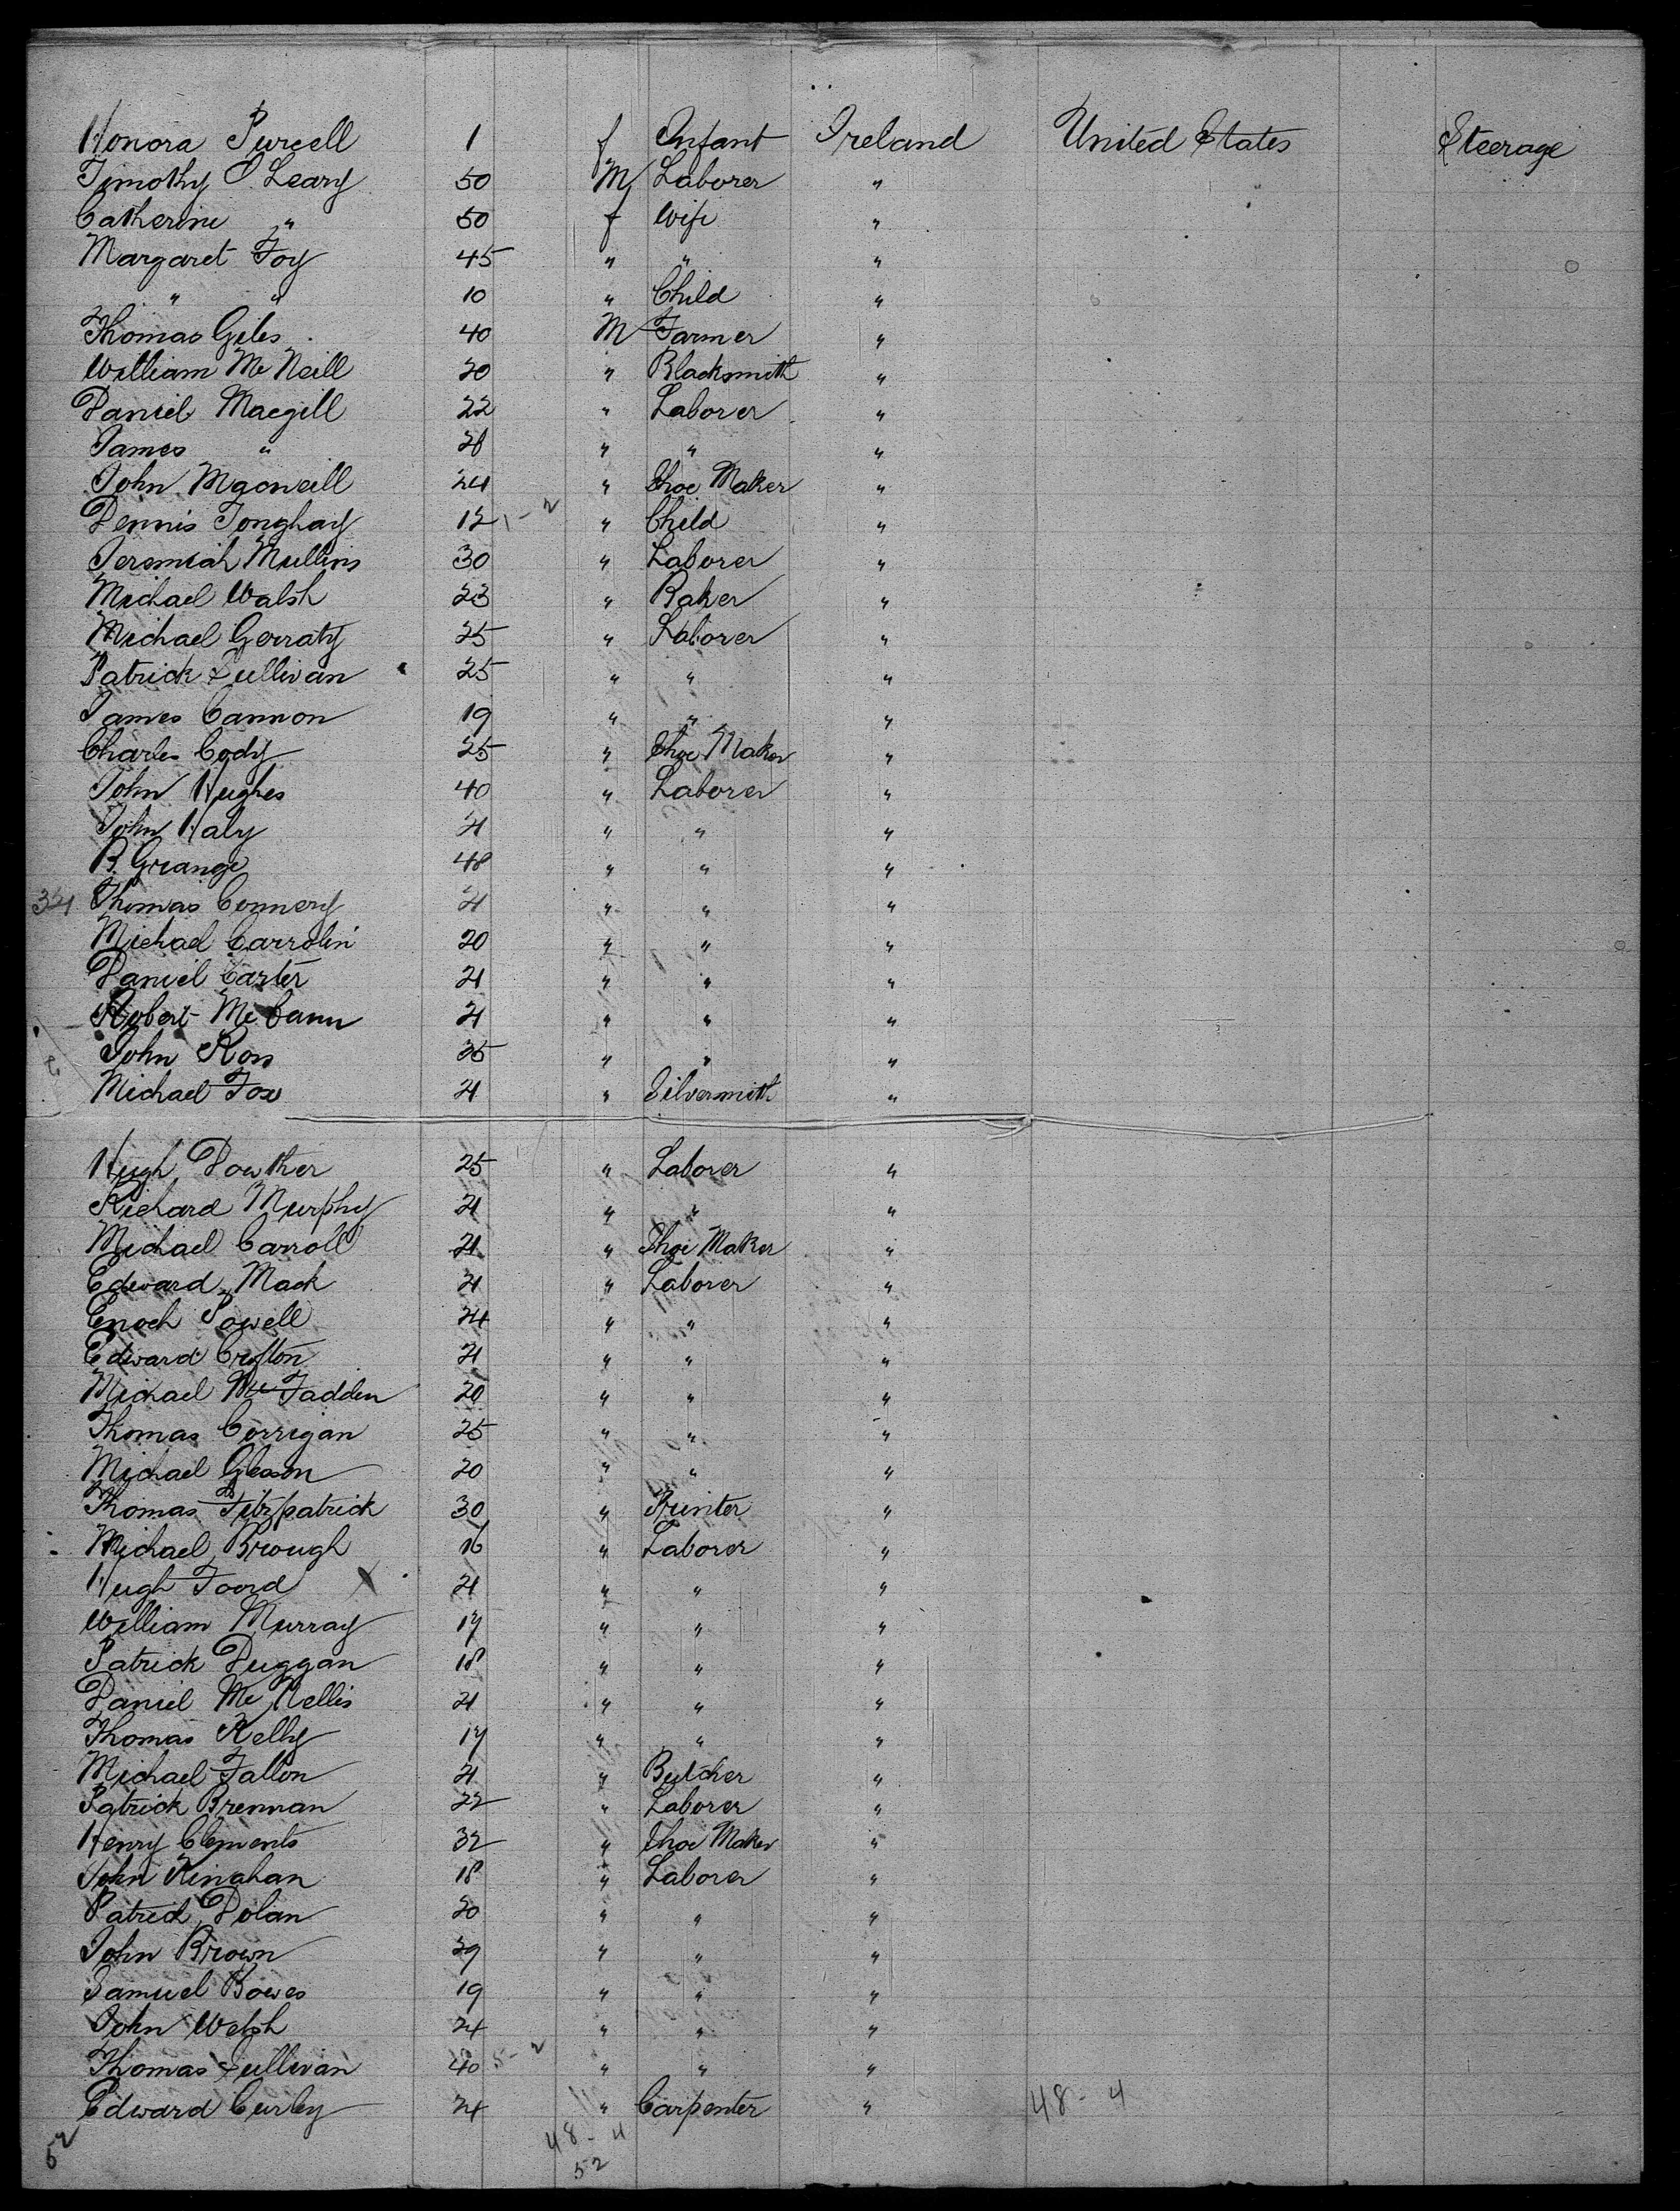 Honora Purcell 1 f Infant Ireland United States Steerage
Timothy O Leary 50 M Laborer "
Catherine " 50 f Wife "
Margaret Foy 45 " " "
" " 10 " Child "
Thomas Giles 40 M Farmer "
William McNeill 20 " Blacksmith "
Daniel Macgill 22 " Laborer "
James " " " "
John 24 " Shoe Maker "
Dennis Tonghay 12 1-2 " Child "
Jeremiah Mullins 30 " Laborer "
Michael Walsh 23 " Baker "
Michael Gerraty 25 " Laborer "
Patrick Sullivan 25 " " "
James Cannon 19 " " "
Charles Cody 25 " Shoe Maker "
John Hughes 40 " Laborer "
John Haly 21 " " "
B. Grange 48 " " "
Thomas Connery 21 " " "
Michael Carrolin 20 " " "
Daniel Carter 21 " " "
Robert McCann 21 " " "
John Ross " " "
Michael Fox 21 " Silversmith "
Hugh Dowther 25 " Laborer "
Richard Murphy 21 " " "
Michael Carroll 21 " Shoe Maker "
Edward Mack 21 " Laborer "
Enoch Powell 24 " " "
Edward Crofton 21 " " "
Michael McFadden 20 " " "
Thomas Corrigan 25 " " "
Michael Gleason 20 " " "
Thomas Fitzpatrick 30 " Printer "
Michael Brough 16 " Laborer "
Hugh Foord X 21 " " "
William Murray 17 " " "
Patrick Duggan 18 " " "
Daniel McNellis 21 " " "
Thomas Kelly 17 " " "
Michael Fallon 21 " Butcher "
Patrick Brennan 22 " Laborer "
Henry Clements 32 " Shoe Maker "
John Kinahan 18 " Laborer "
Patrick Dolan 20 " " "
John Brown 29 " " "
Samuel Bowes 19 " " "
John Welsh 24 " " "
Thomas Sullivan 40 5-2 " " "
Edward Curley 24 " Carpenter " 48-4
52 48-4
52